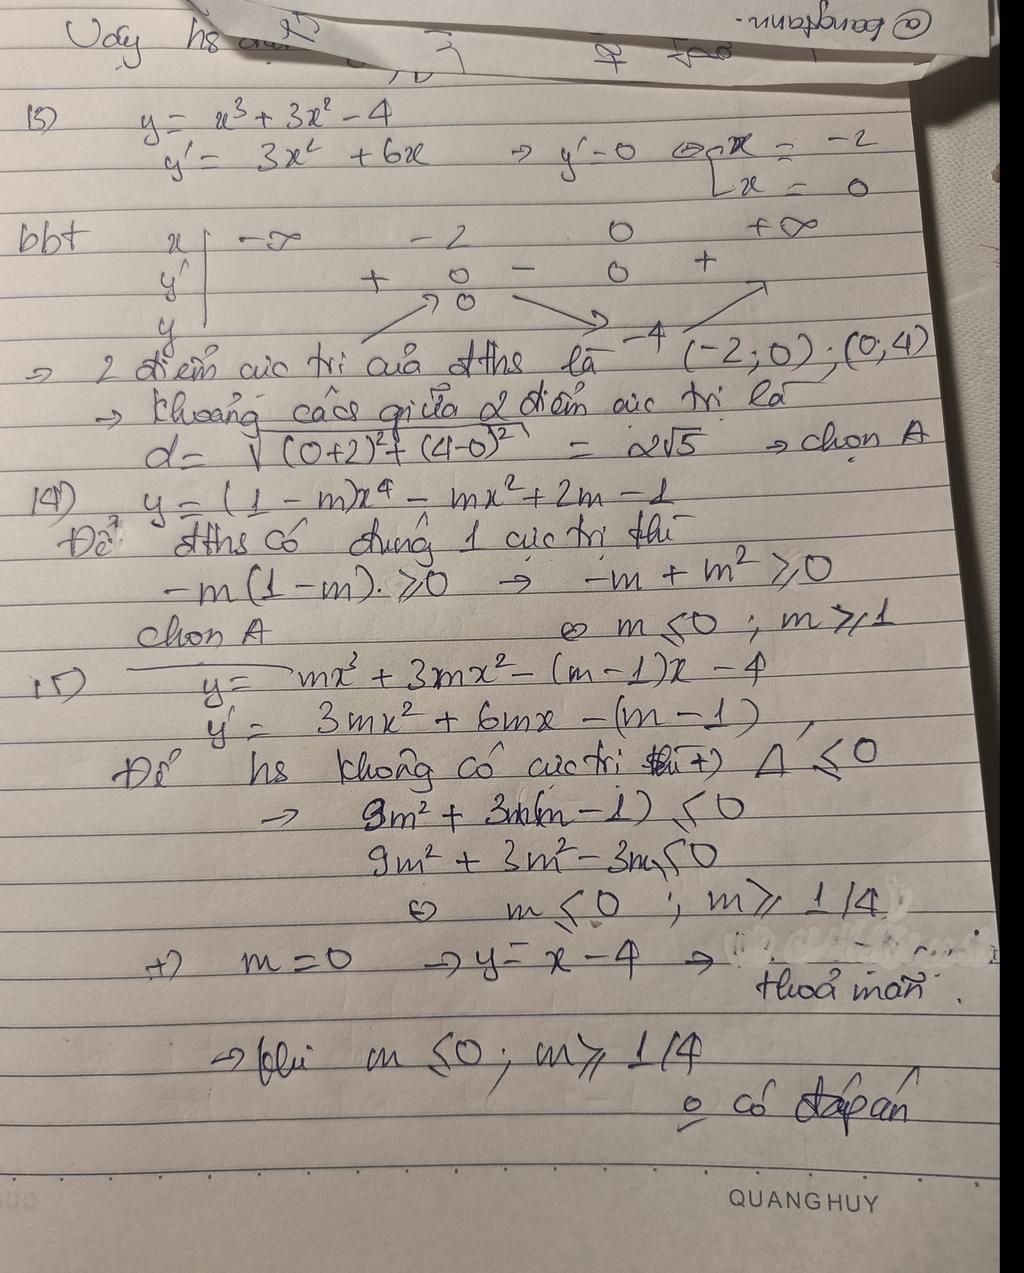 @bangtann.
Vậy hs
13) y = x³ + 3x² - 4
y' = 3x² + 6x → y' = 0 ⇔ [ x = -2
x = 0
bbt x -∞ -2 0 +∞
y' + 0 - 0 +
y 0 -4
→ 2 điểm cực trị của đths là (-2;0); (0;4)
→ khoảng cács giữa 2 điểm cực trị là
d = √(0+2)² + (4-0)² = 2√5 → chọn A
14) y = (1 - m)x⁴ - mx² + 2m - 1
Để đths có đúng 1 cực trị thì
-m(1 - m). ≥ 0 → -m + m² ≥ 0
chọn A ⇔ m ≤ 0 ; m ≥ 1
15) y = mx³ + 3mx² - (m - 1)x - 4
y' = 3mx² + 6mx - (m - 1)
Để hs không có cực trị thì +) Δ' ≤ 0
→ 9m² + 3m(m - 1) ≤ 0
9m² + 3m² - 3m ≤ 0
⇔ m ≤ 0 ; m ≥ 1/4
+) m = 0 → y = x - 4 →
thoả mãn.
→ khi m ≤ 0 ; m ≥ 1/4
o có đáp án
QUANG HUY